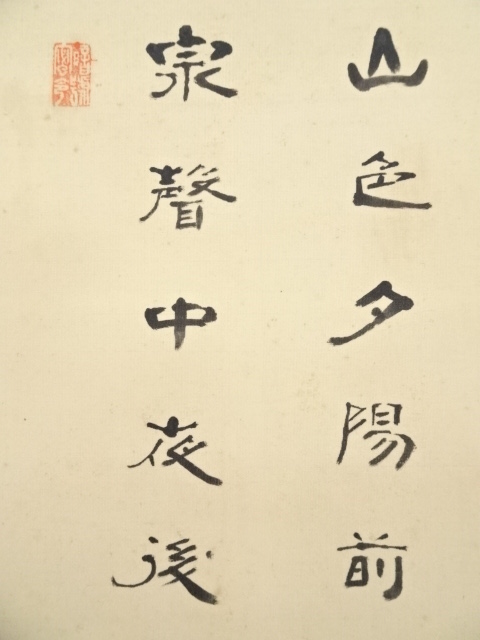 山色夕陽前
泉聲中夜後